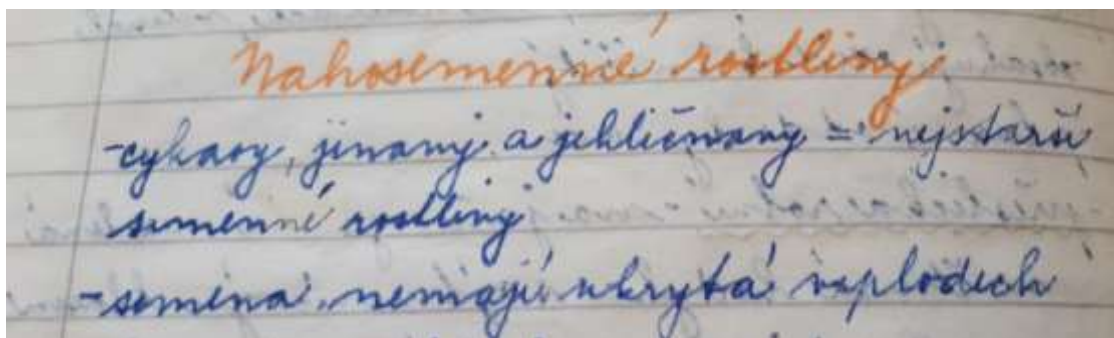 Nahosemenné rostliny
-cykasy, jinany a jehličnany = nejstarší
semenné rostliny
-semena nemají ukrytá v plodech